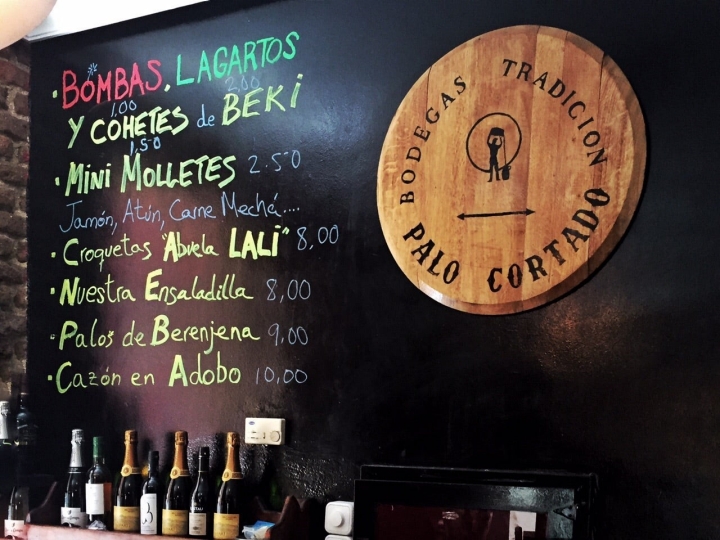 · BOMBAS, LAGARTOS
1,00 2,00
Y COHETES de BEKi
1,50
· MiNi MOLLETES 2.50
Jamón, Atún, Carne Mechá....
· Croquetas "Abuela LALi" 8,00
· Nuestra Ensaladilla 8,00
· Palos de Berenjena 9,00
· Cazón en Adobo 10,00
BODEGAS TRADICION
PALO CORTADO